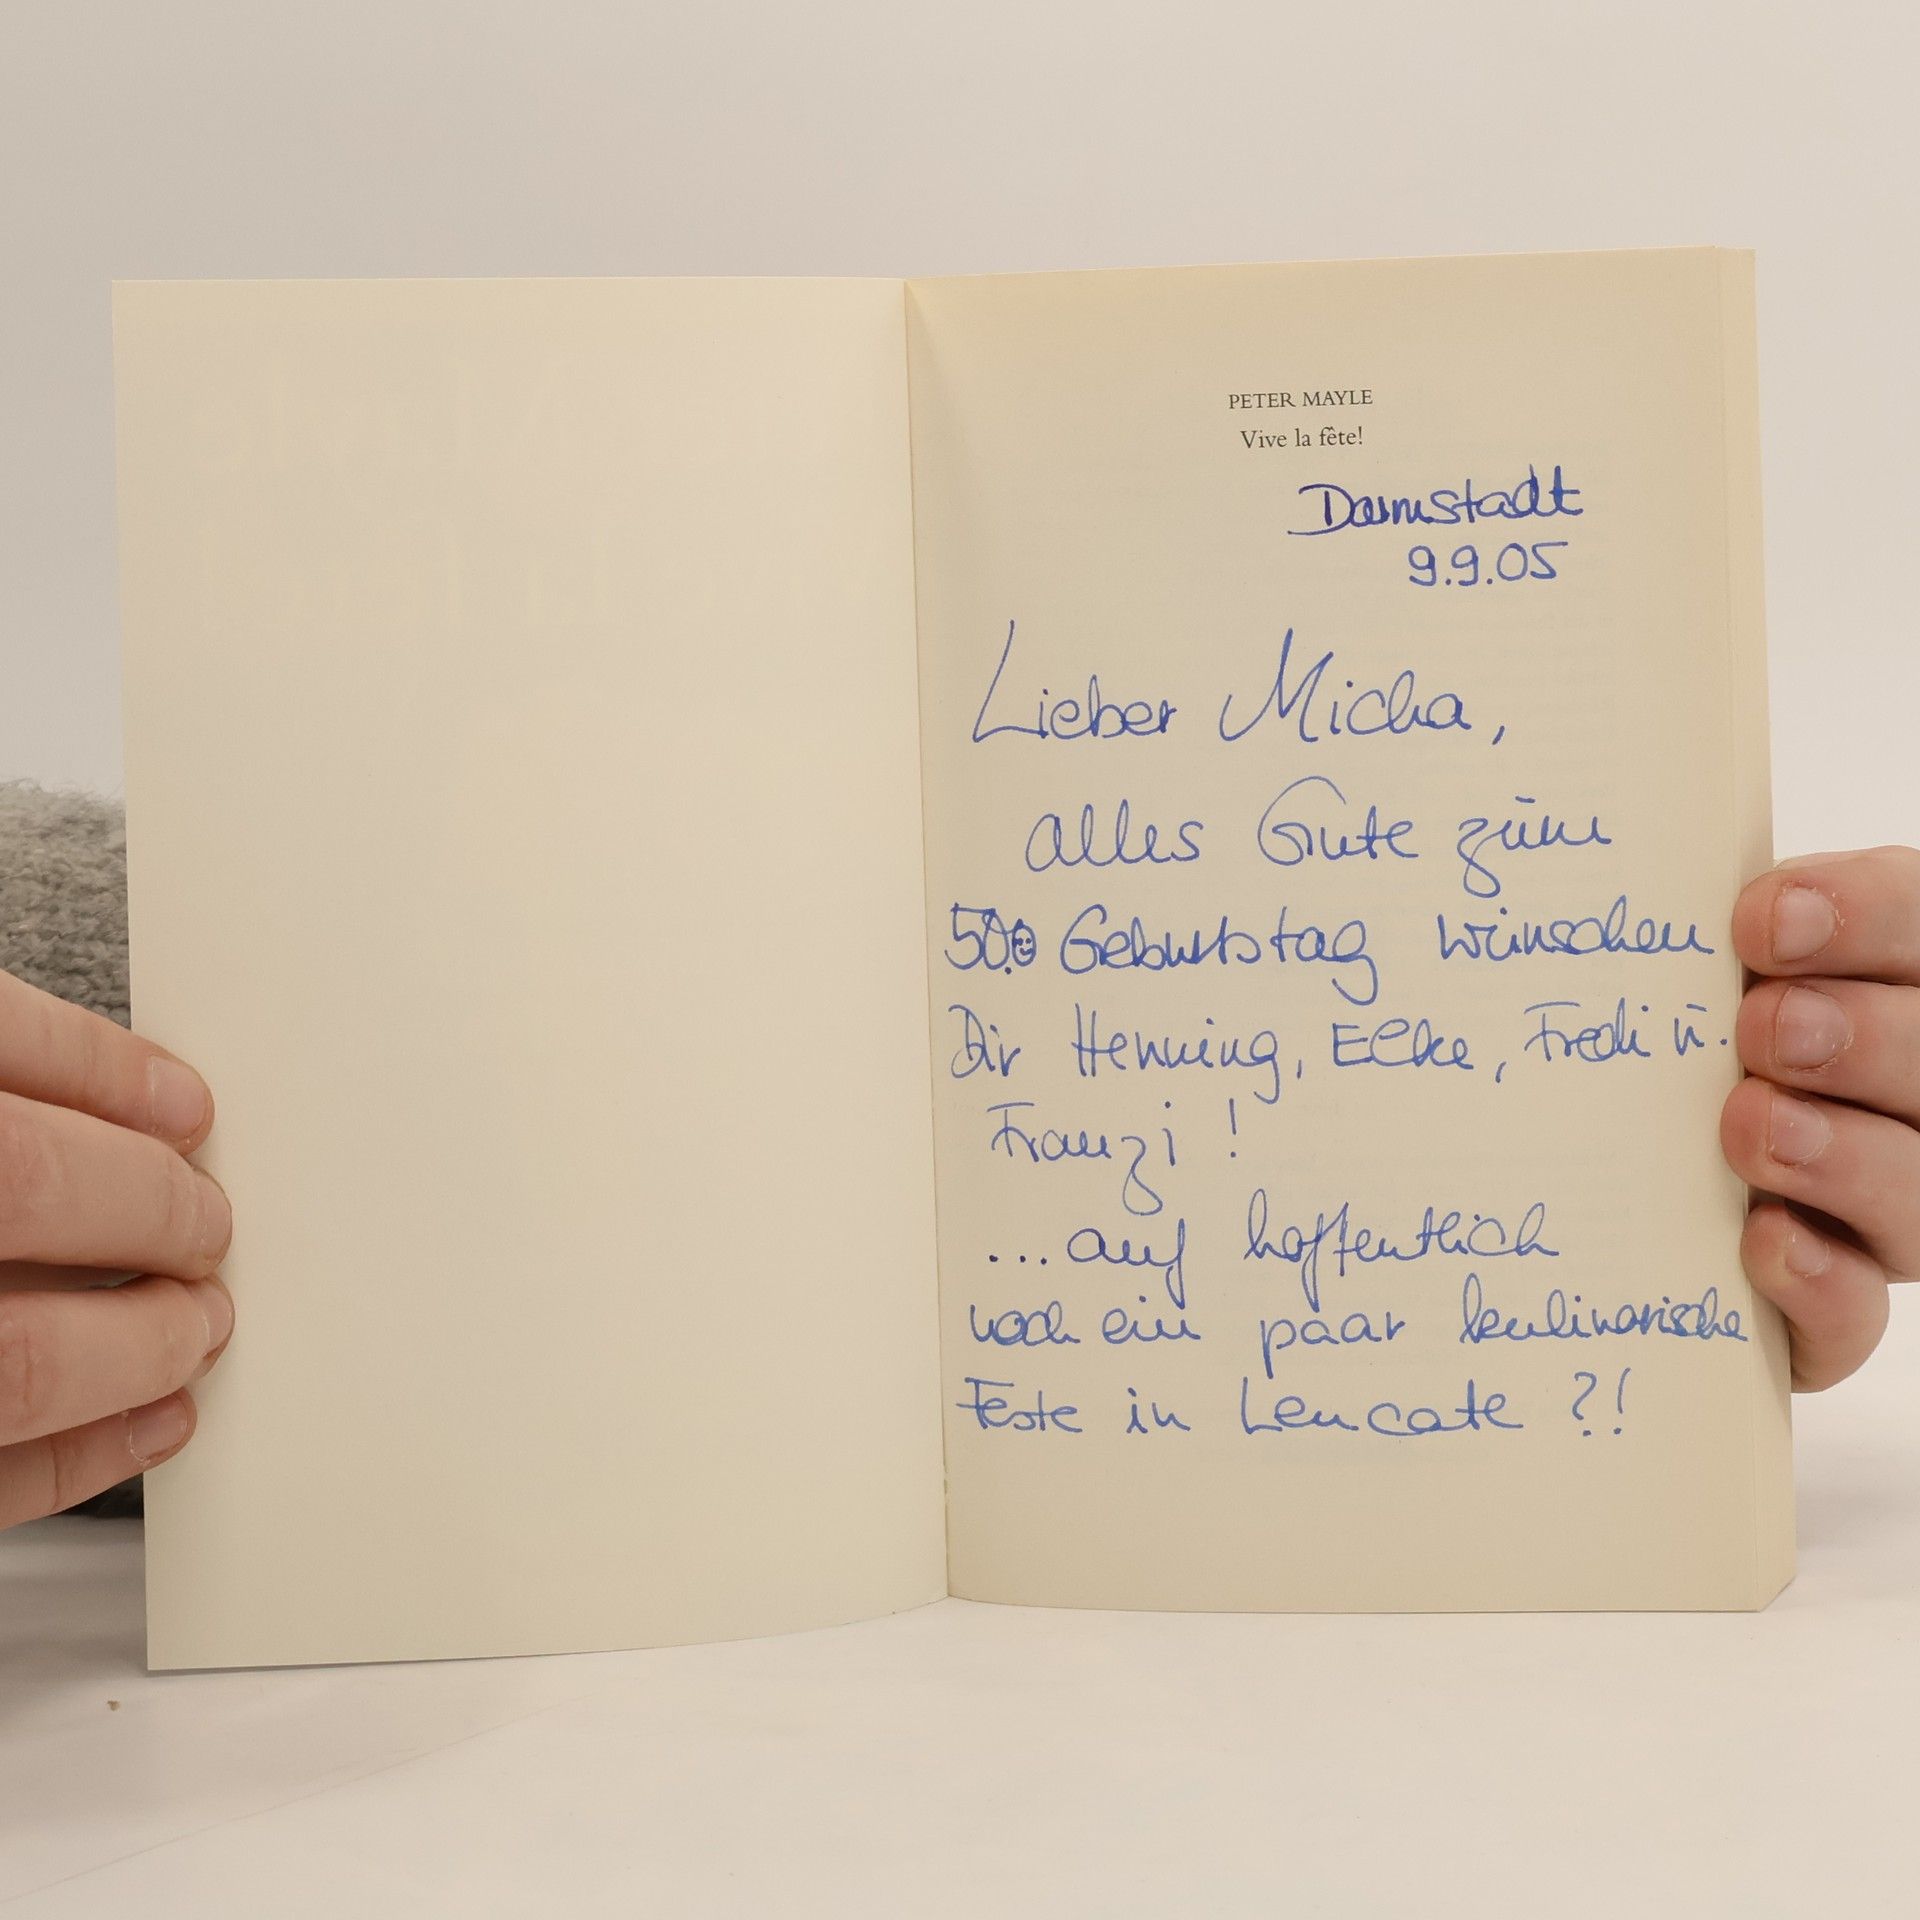 PETER MAYLE
Vive la fête!
Darmstadt
9.9.05
Lieber Micha,
alles Gute zum
50. Geburtstag wünschen
Dir Henning, Elke, Fredi u.
Franzi !
... auf hoffentlich
noch ein paar kulinarische
Feste in Leucate ?!